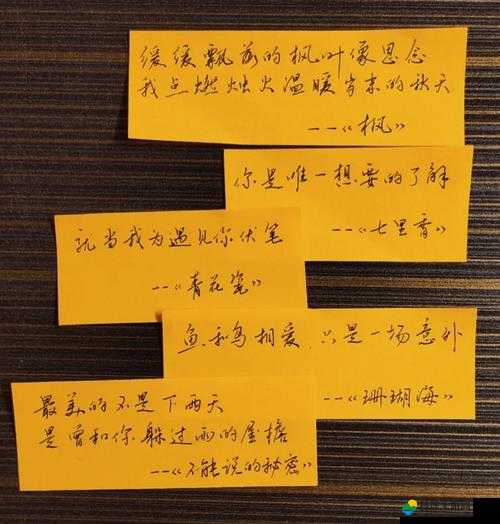 缓缓飘落的枫叶像思念
我点燃烛火温暖岁末的秋天
——《枫》
你是唯一想要的了解
——《七里香》
就当我为遇见你伏笔
——《青花瓷》
鱼和鸟相爱，只是一场意外
——《珊瑚海》
最美的不是下雨天
是曾和你躲过雨的屋檐
——《不能说的秘密》